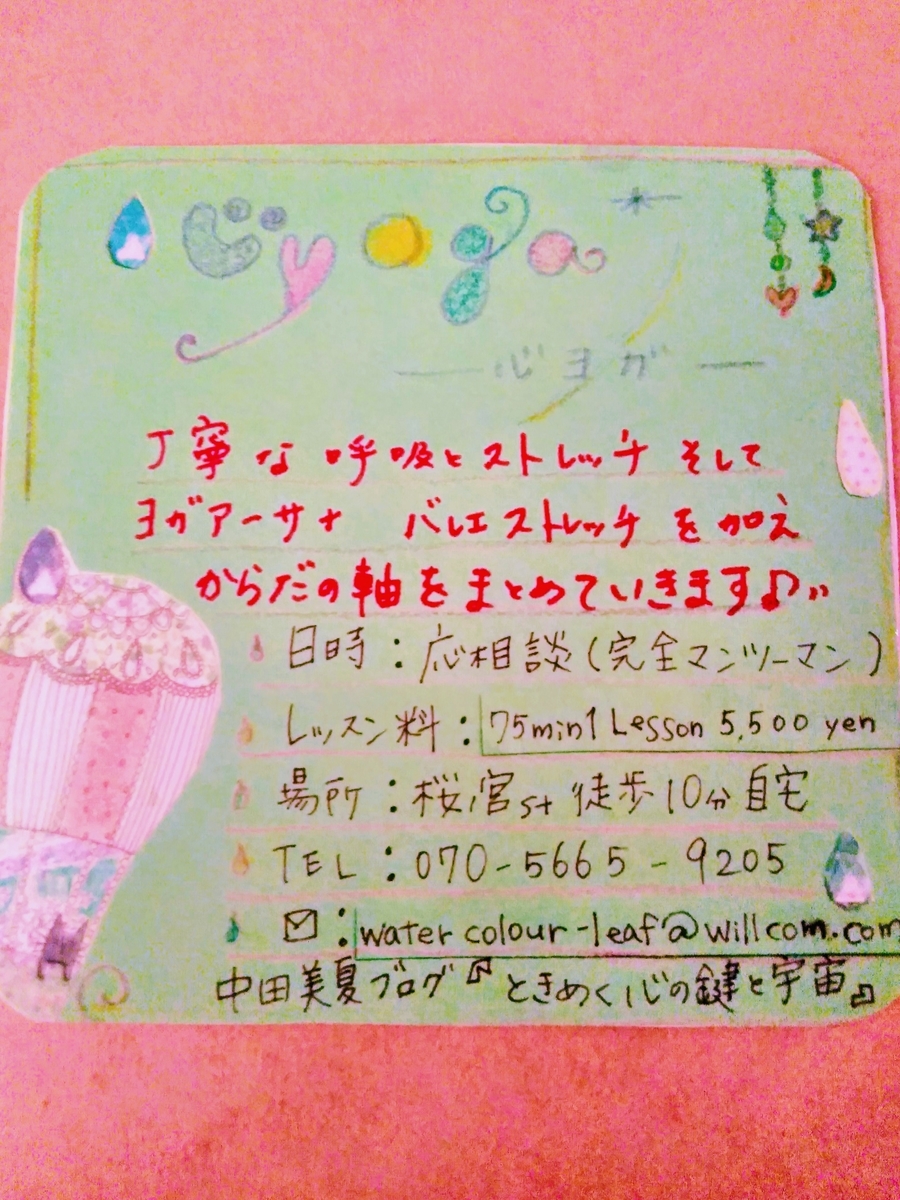 心yoga
―心ヨガ―
丁寧な呼吸とストレッチ そして
ヨガアーサナ バレエストレッチを加え
からだの軸をまとめていきます♪〃
日時:応相談(完全マンツーマン)
レッスン料:75min1 Lesson 5,500 yen
場所:桜ノ宮st 徒歩10分自宅
TEL:070-5665-9205
✉:water colour-leaf@willcom.com
中田美夏ブログ『ときめく心の鍵と宇宙』